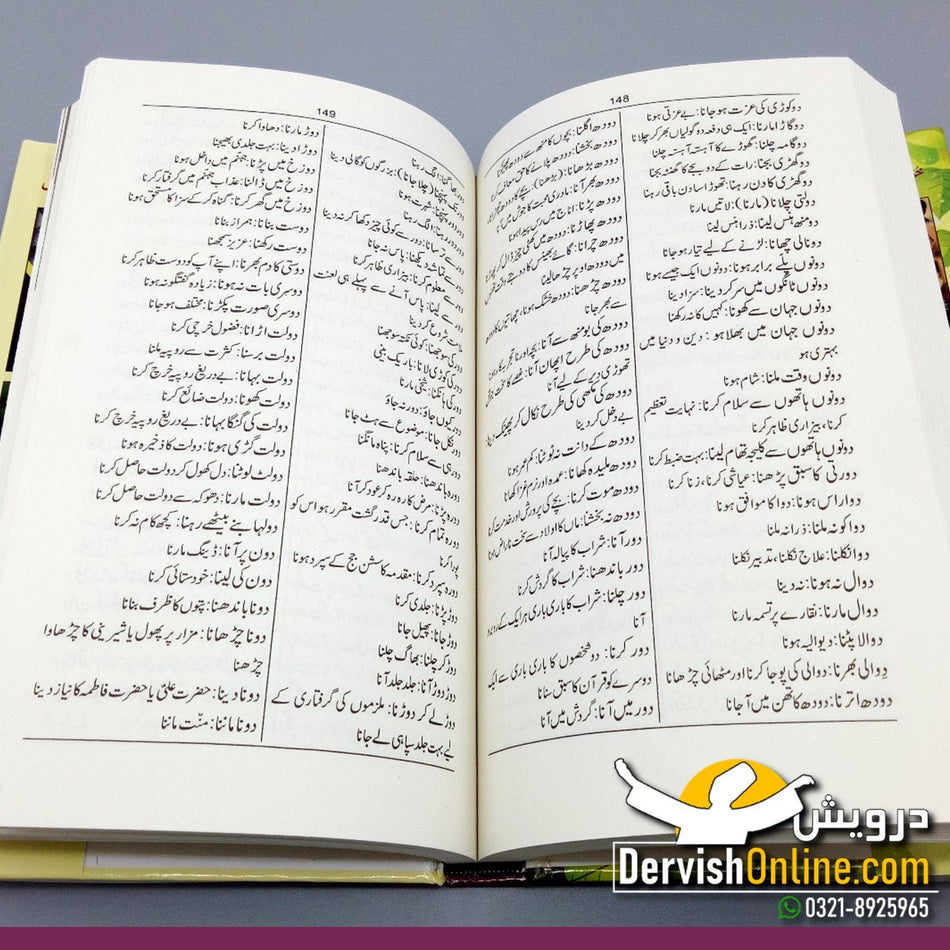 148
دو کوڑی کی عزت ہو جانا: بے عزتی ہونا
دوگاڑا مارنا: ایک ہی دفعہ دو گولیاں بھر کر چلانا
دوگامہ چلنا: گھوڑے کا آہستہ آہستہ چلنا
دو گھڑی بجنا: رات کے دو بجے کا گھنٹہ بجنا
دو گھڑی کا دن رہنا: تھوڑا سا دن باقی رہنا
دولتی چلانا (مارنا): لاتیں مارنا
دو منھ ہنس لینا: ذرا ہنس لینا
دونالی چھانا: لڑنے کے لیے تیار ہو جانا
دونوں پلے برابر ہونا: دونوں ایک جیسے ہونا
دونوں ٹانگوں میں سر کر دینا: سزا دینا
دونوں جہان سے کھونا: کہیں کا نہ رکھنا
دونوں جہان میں بھلا ہو: دین و دنیا میں
بہتری ہو
دونوں وقت ملنا: شام ہونا
دونوں ہاتھوں سے سلام کرنا: نہایت تعظیم
کرنا، بیزاری ظاہر کرنا
دونوں ہاتھوں سے کلیجہ تھام لینا: بہت ضبط کرنا
دورتی کا سبق پڑھنا: عیاشی کرنا، زنا کرنا
دوا راس ہونا: دوا کا موافق ہونا
دوا کو نہ ملنا: ذرا نہ ملنا
دوا نکلنا: علاج نکلنا، تدبیر نکلنا
دوال نہ ہونا: نہ دینا
دوال مارنا: نقارے پر تسمہ مارنا
دوالا پٹنا: دیوالیہ ہونا
دوالی بھرنا: دوالی کی پوجا کرنا اور مٹھائی چڑھانا
دودھ اترنا: دودھ کا تھن میں آجانا
دودھ اگلنا: بچوں کا منھ سے دودھ پھینکنا
دودھ بخشنا: دودھ پلانے کا حق معاف کرنا
دودھ بڑھانا: (بڑھنا) بچے کا دودھ
دودھ بھر آنا: مادری محبت کا جوش
دودھ پڑنا: اناج میں رس پیدا ہونا
دودھ پھاڑنا: دودھ میں کھٹی چیز ڈال کر
دودھ چرانا: گائے بھینس کا دوہتے
میں دودھ اوپر چڑھا لینا
دودھ چڑھنا: دودھ خشک ہونا، چھاتیوں کا دودھ
سے بھر جانا
دودھ کی بو منھ سے آنا: بچہ اور ناتجربہ کار ہونا
دودھ کی طرح اپھان آنا:
تھوڑی دیر کے لیے آنا
دودھ کی مکھی کی طرح نکال کر پھینک دینا:
بے دخل کر دینا
دودھ کے دانت نہ ٹوٹنا: کم عمر ہونا
دودھ ملیدہ کھانا: عمدہ اور نرم غذا کھانا
دودھ موت کرنا: بچے کی پرورش اور خدمت کرنا
دودھ نہ بخشنا: ماں کا اولاد سے سخت ناراض ہونا
دور آنا: شراب کا پیالہ آنا
دور باندھنا: شراب کا گردش کرنا
دور چلنا: شراب کا باری باری ہر ایک کے
آنا
دور کرنا: دو شخصوں کا باری باری سے ایک
دوسرے کو قرآن کا سبق سنانا
دور میں آنا: گردش میں آنا
149
دور بھاگنا: الگ رہنا
دور تک پہنچنا (چلا جانا): بزرگوں کو گالی دینا
دور دور پہنچنا: شہرت ہونا
دور دور رہنا: الگ رہنا
دور سے ترسانا: دور سے کوئی چیز دکھا کر نہ دینا
دور سے تماشہ دیکھنا: پاس نہ جانا
دور سے سلام کرنا: بیزاری ظاہر کرنا
دور سے لینا: پاس آنے سے پہلے ہی لعنت
ملامت شروع کر دینا
دور کی سوجھنا: کوئی نکتہ سوجھنا
دور کی کوڑی لانا: باریک بینی
دور کی ہانکنا: شیخی مارنا
دور کیوں جاؤ: دور نہ جاؤ
دور نکل جانا: موضوع سے ہٹ جانا
دور ہی سے سلام کرنا: پناہ مانگنا
دورہ باندھنا: حلقہ باندھنا
دورہ پڑنا: مرض کا رہ رہ کر عود کر آنا
دورہ تمام کرنا: جس قدر گشت مقرر ہو اس کو
پورا کرنا
دورہ سپرد کرنا: مقدمہ کا سشن جج کے سپرد ہونا
دوڑ پڑنا: جلدی کرنا
دوڑ جانا: پھیل جانا
دوڑ کر چلنا: بھاگ چلنا
دوڑ دوڑ آنا: جلد جلد آنا
دوڑ لے کر دوڑنا: ملزموں کی گرفتاری کے
لیے بہت جلد سپاہی لے جانا
دوڑ مارنا: دھاوا کرنا
دوڑا دینا: بہت جلدی بھیجنا
دوزخ میں پڑنا: جہنم میں داخل ہونا
دوزخ میں ڈالنا: عذاب جہنم میں گرفتار کرنا
دوزخ میں گھر کرنا: گناہ کر کے سزا کا مستحق ہونا
دوست بنانا: ہمراز بنانا
دوست رکھنا: عزیز سمجھنا
دوستی کا دم بھرنا: اپنے آپ کو دوست ظاہر کرنا
دوسری بات نہ ہونا: زیادہ گفتگو نہ ہونا
دوسری صورت پکڑنا: مختلف ہو جانا
دولت اڑانا: فضول خرچی کرنا
دولت برسنا: کثرت سے روپیہ ملنا
دولت بہانا: بے دریغ روپیہ خرچ کرنا
دولت کھونا: دولت ضائع کرنا
دولت کی گنگا بہانا: بے دریغ روپیہ خرچ کرنا
دولت گڑی ہونا: دولت کا ذخیرہ ہونا
دولت لوٹنا: دل کھول کر دولت حاصل کرنا
دولت مارنا: دھوکہ سے دولت حاصل کرنا
دولہا بنے بیٹھے رہنا: کچھ کام نہ کرنا
دون پر آنا: ڈینگ مارنا
دون کی لینا: خودستائی کرنا
دونا باندھنا: پتوں کا ظرف بنانا
دونا چڑھانا: مزار پر پھول یا شیرینی کا چڑھاوا
چڑھنا
دونا دینا: حضرت علیؓ یا حضرت فاطمہؓ کا نیاز دینا
دونا ماننا: منّت ماننا
درویش
DervishOnline.com
0321-8925965